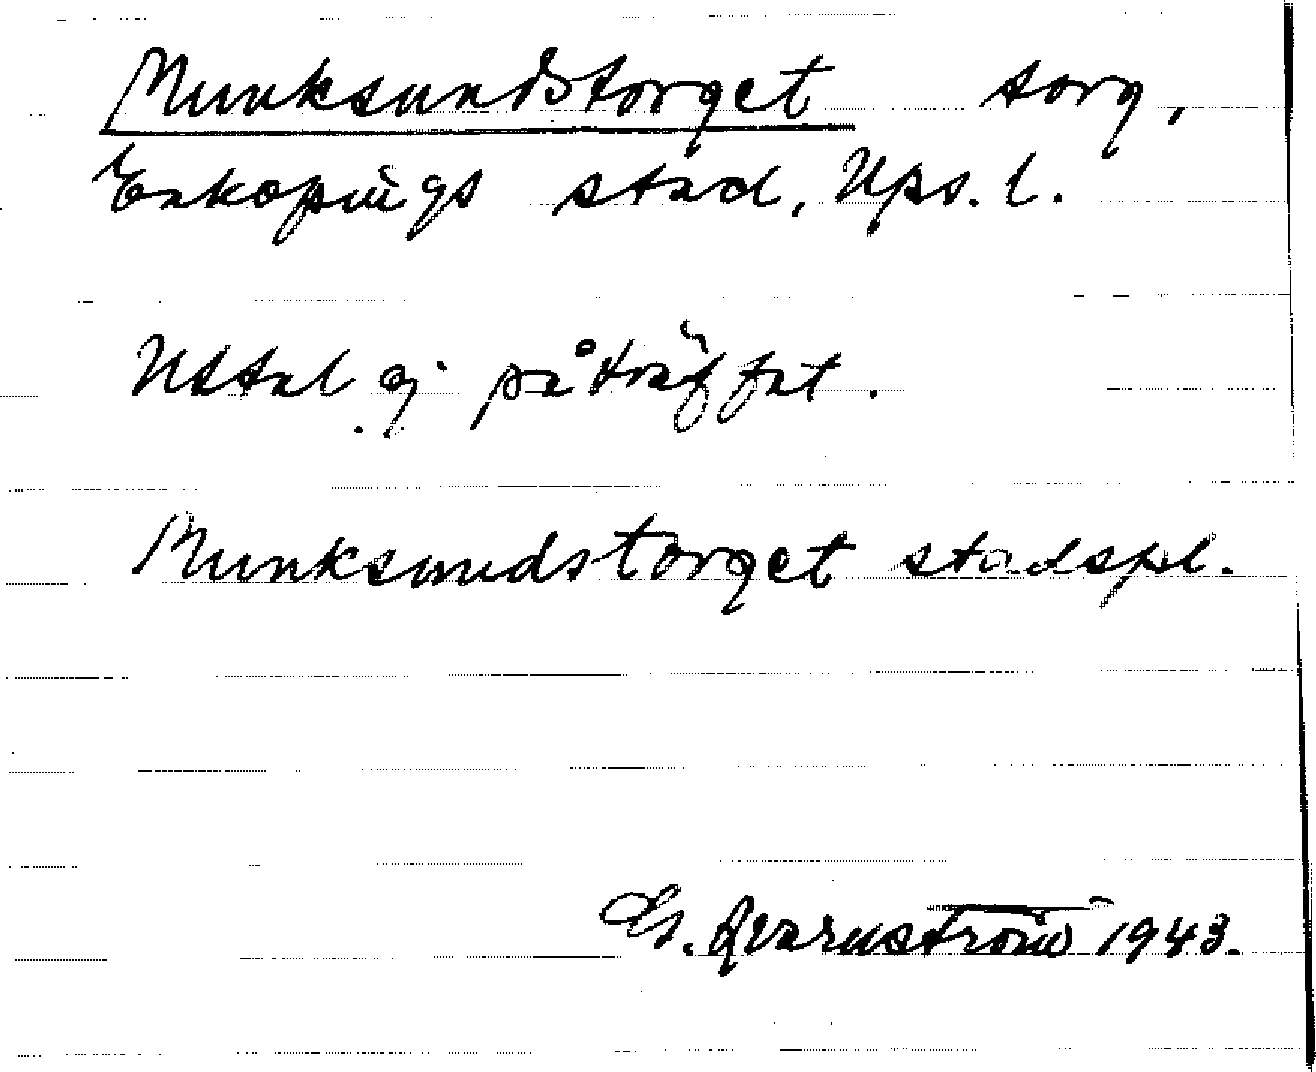 Munksundstorget torg,
Enköpings stad, Ups. l.
Uttal ej påträffat.
Munksundstorget stadspl.
Qvarnström 1943.